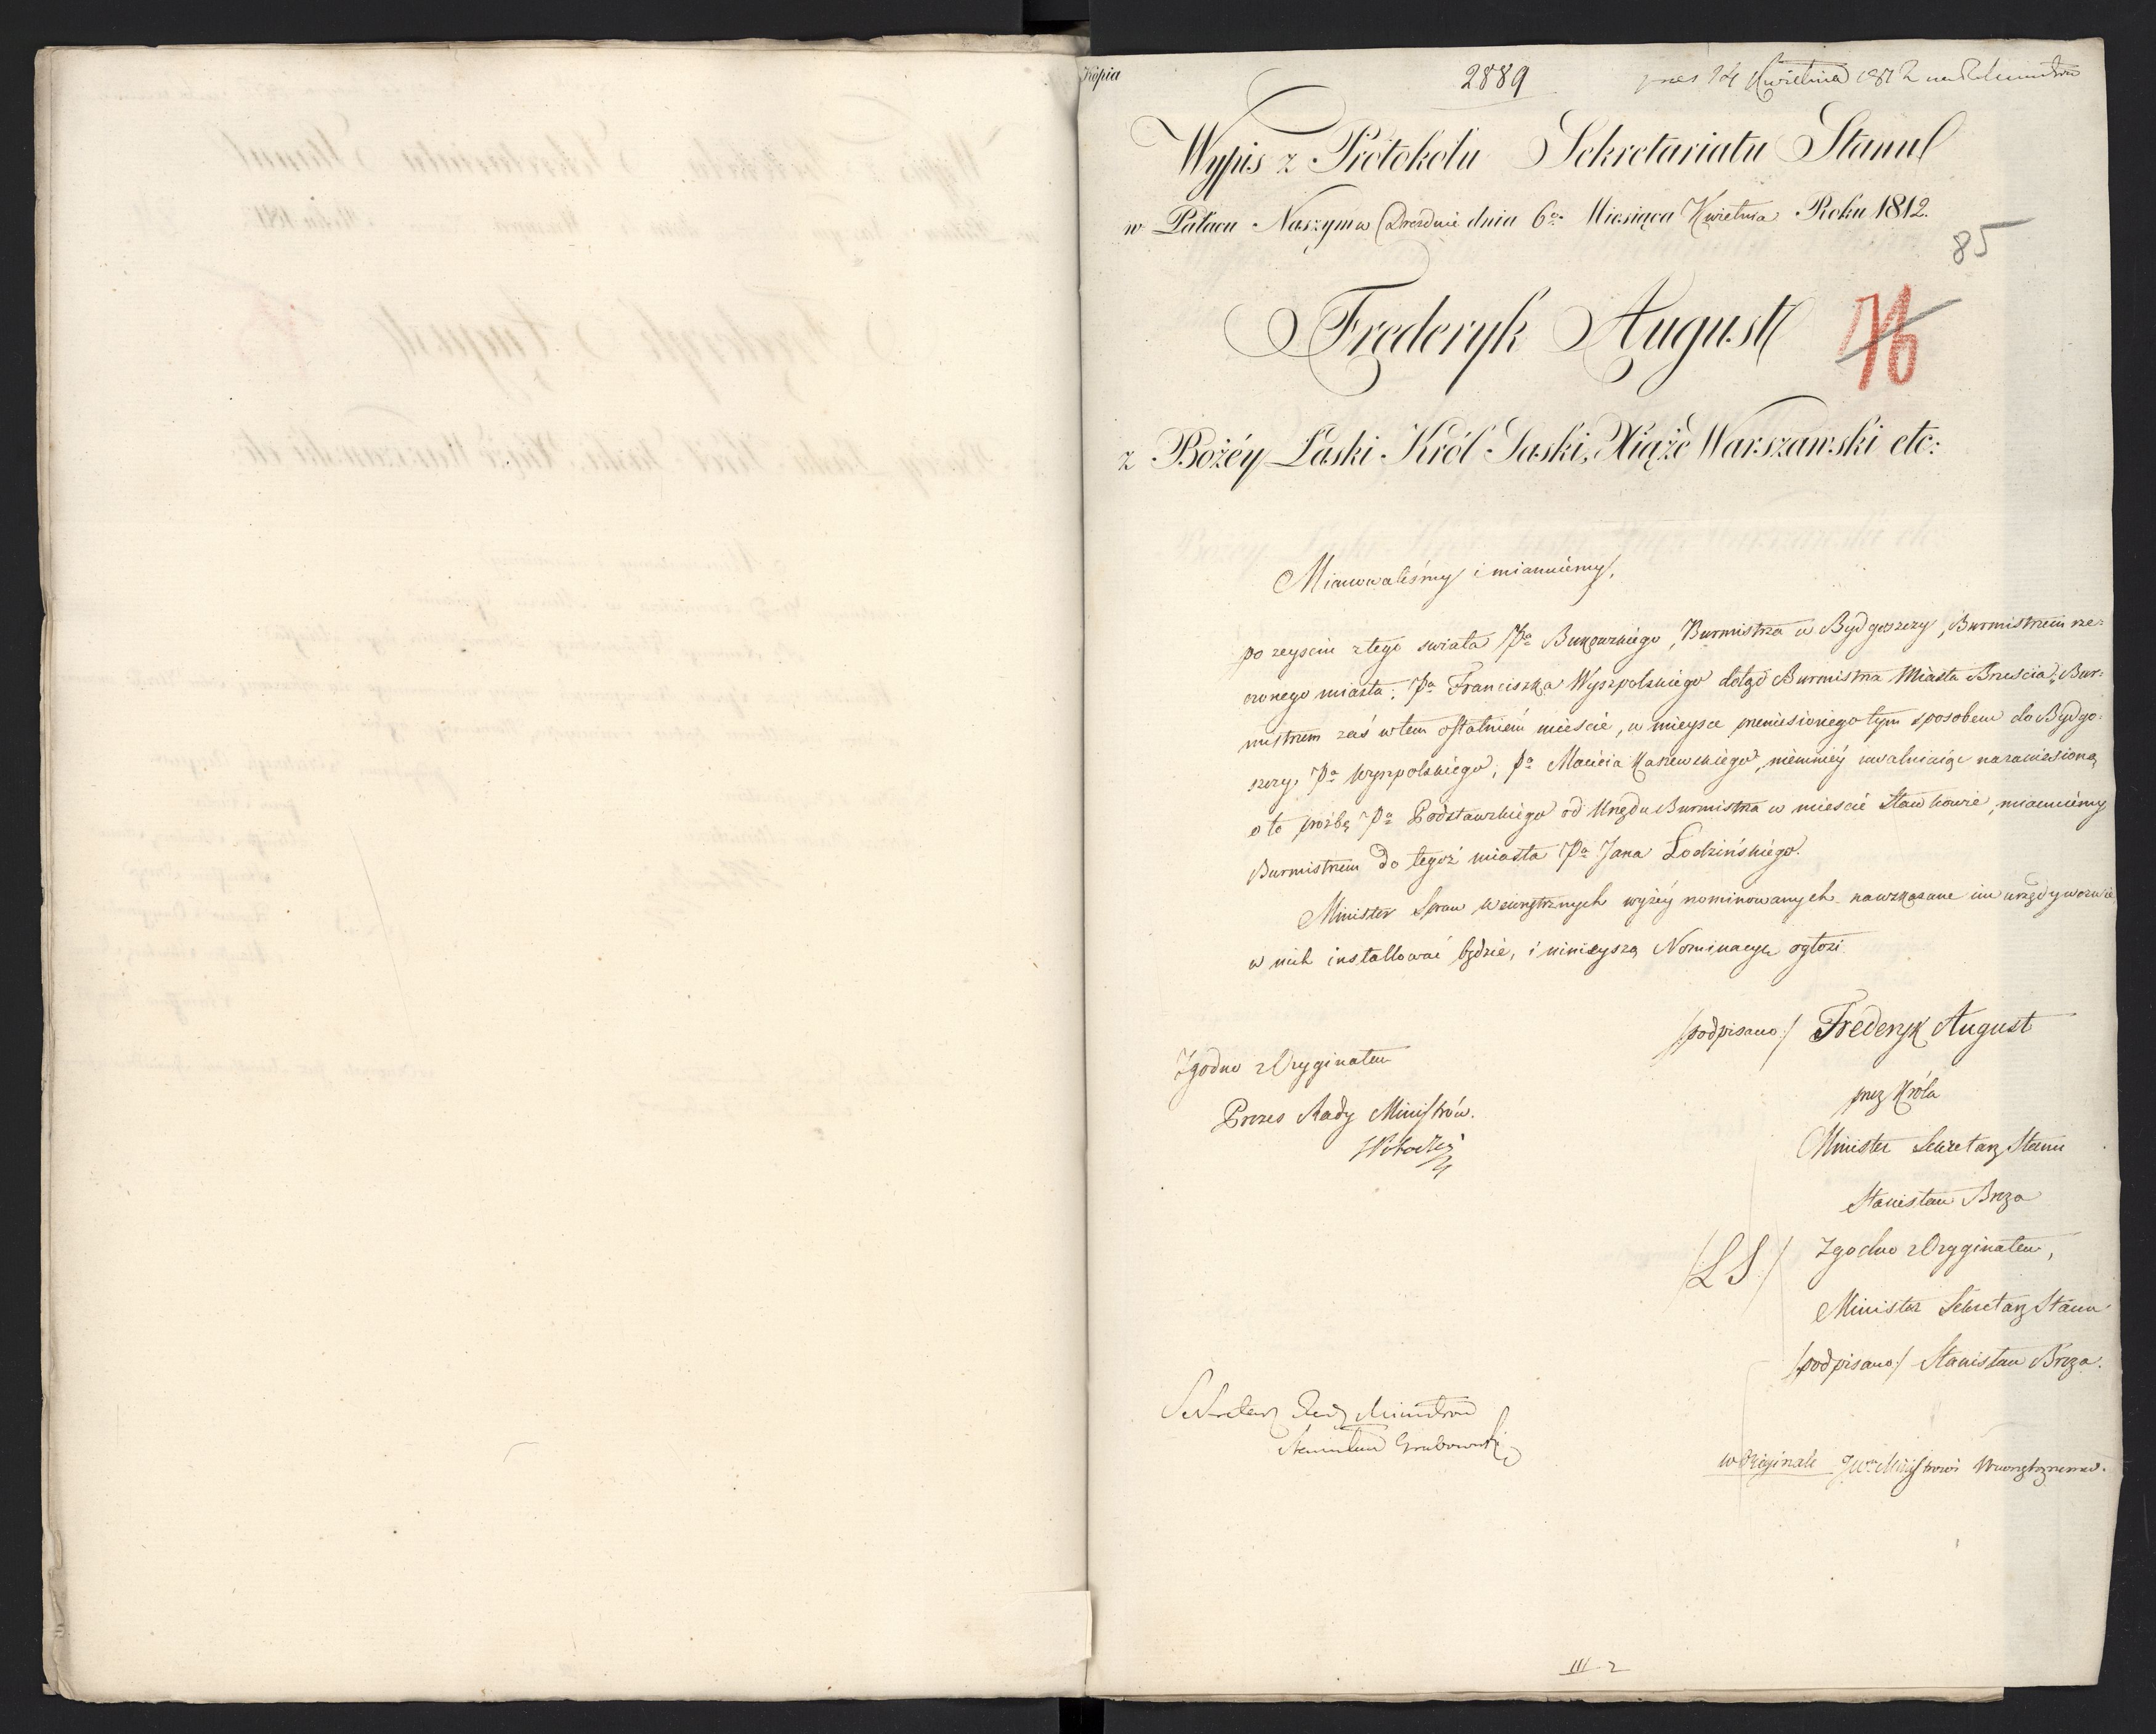 Kopia
2889
pres 14 Kwietnia 1812 na R Ministrów
Wypis z Protokołu Sekretariatu Stanu
w Pałacu Naszym w Dreźnie dnia 6go Miesiąca Kwietnia Roku 1812.
85
76
Frederyk August
z Bożéy Łaski Król Saski, Xiąże Warszawski etc:
Mianowaliśmy i mianuiemy,
po zeysciu z tego swiata Pa Bukowskiego, Burmistrza w Bydgoszczy, Burmistrzem rze=
czonego miasta; Pa Franciszka Wyszpolskiego dotąd Burmistrza Miasta Brzescia; Bur=
mistrzem zaś w tem ostatniem mieście, w mieysce przeniesionego tym sposobem do Bydgo=
szczy, Pa Wyszpolskiego, Pa Macieia Kaszewskiego, niemniéy uwalniaiąc na zaniesioną
o to prożbę Pa Podstawskiego od Urzędu Burmistrza w mieście Sławkowie, mianuiemy
Burmistrzem do tegoż miasta Pa Jana Łodzińskiego.
Minister Spraw Wewnętrznych wyżéy nominowanych na wskazane im urzędy wezwie
w nich installować będzie, i ninieyszą Nominacyę ogłosi.
/podpisano:/ Frederyk August
Zgodno z Oryginałem
przez Króla
Prezes Rady Ministrów.
Minister Sekretarz Stanu
Stanisław Breza
/LS/ Zgodno z Oryginałem,
Minister Sekretarz Stanu
/podpisano/ Stanisław Breza.
Sekretarz Rady Ministrów
Stanisław Grabowski
w Oryginale JWu Ministrowi Wewnętrznemu.
III 2